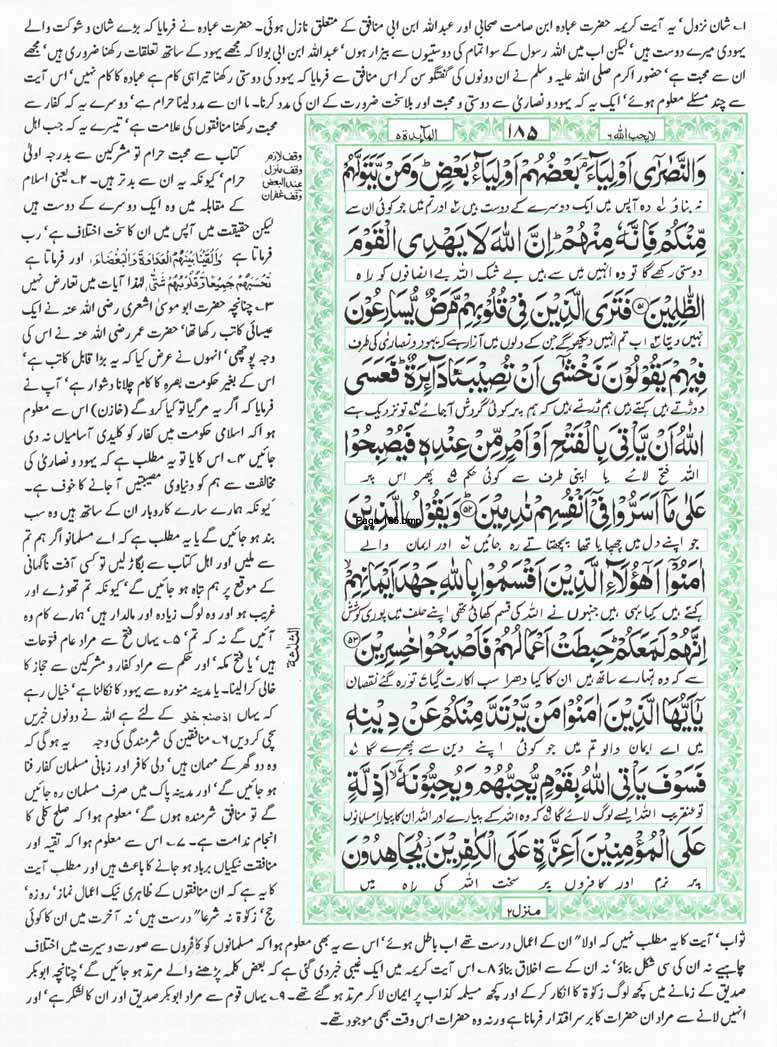 ۱۔ شان نزول' یہ آیت کریمہ حضرت عبادہ ابن صامت صحابی اور عبداللہ ابن ابی منافق کے متعلق نازل ہوئی۔ حضرت عبادہ نے فرمایا کہ بڑے شان و شوکت والے
یہودی میرے دوست ہیں' لیکن اب میں اللہ رسول کے سوا تمام کی دوستیوں سے بیزار ہوں' عبداللہ ابن ابی بولا کہ مجھے یہود کے ساتھ تعلقات رکھنا ضروری ہیں' مجھے
ان سے محبت ہے' حضور اکرم صلی اللہ علیہ وسلم نے ان دونوں کی گفتگو سن کر اس منافق سے فرمایا کہ یہود کی دوستی رکھنا تیرا ہی کام ہے عبادہ کا کام نہیں' اس آیت
سے چند مسئلے معلوم ہوئے' ایک یہ کہ یہود و نصاریٰ سے دوستی و محبت اور بلا سخت ضرورت کے ان کی مدد کرنا۔ یا ان سے مدد لینا حرام ہے' دوسرے یہ کہ کفار سے
محبت رکھنا منافقوں کی علامت ہے' تیسرے یہ کہ جب اہل
کتاب سے محبت حرام تو مشرکین سے بدرجہ اولیٰ
حرام' کیونکہ یہ ان سے بدتر ہیں۔ ۲۔ یعنی اسلام
کے مقابلہ میں وہ ایک دوسرے کے دوست ہیں
لیکن حقیقت میں آپس میں ان کا سخت اختلاف ہے' رب
فرماتا ہے وَاَلْقَیْنَا بَیْنَہُمُ الْعَدَاوَۃَ وَالْبَغْضَآءَ، اور فرماتا ہے
تَحْسَبُہُمْ جَمِیْعًا وَّقُلُوْبُہُمْ شَتّٰی لہٰذا آیات میں تعارض نہیں
۳۔ چنانچہ حضرت ابو موسیٰ اشعری رضی اللہ عنہ نے ایک
عیسائی کاتب رکھا تھا' حضرت عمر رضی اللہ عنہ نے اس کی
وجہ پوچھی' انہوں نے عرض کیا کہ یہ بڑا قابل کاتب ہے'
اس کے بغیر حکومت بصرہ کا کام چلانا دشوار ہے' آپ نے
فرمایا کہ اگر یہ مر گیا تو کیا کرو گے (خازن) اس سے معلوم
ہوا کہ اسلامی حکومت میں کفار کو کلیدی آسامیاں نہ دی
جائیں ۴۔ اس کا یا تو یہ مطلب ہے کہ یہود و نصاریٰ کی
مخالفت سے ہم کو دنیاوی مصیبتیں آ جانے کا خوف ہے۔
کیونکہ ہمارے سارے کاروبار ان کے ساتھ ہیں وہ سب
بند ہو جائیں گے یا یہ مطلب ہے کہ اے مسلمانو اگر ہم تم
سے ملیں اور اہل کتاب سے بگاڑ لیں تو کسی آفت ناگہانی
کے موقع پر ہم تباہ ہو جائیں گے' کیونکہ تم تھوڑے اور
غریب ہو اور وہ لوگ زیادہ اور مالدار ہیں' ہمارے کام وہ
آئیں گے نہ کہ تم' ۵۔ یہاں فتح سے مراد عام فتوحات
ہیں' یا فتح مکہ' اور حکم سے مراد کفار و مشرکین سے حجاز کا
خالی کرا لینا۔ یا مدینہ منورہ سے یہود کا نکالنا ہے' خیال رہے
کہ یہاں کے لئے ہے اللہ نے دونوں خبریں
سچی کر دیں ۶۔ منافقین کی شرمندگی کی وجہ یہ ہو گی کہ
وہ دو گھر کے مہمان ہیں' دلی کافر اور زبانی مسلمان کفار فنا
ہو جائیں گے' اور مدینہ پاک میں صرف مسلمان رہ جائیں
گے تو منافق شرمندہ ہوں گے' معلوم ہوا کہ صلح کلی کا
انجام ندامت ہے۔ ۷۔ اس سے معلوم ہوا کہ تقیہ اور
منافقت نیکیاں برباد ہو جانے کا باعث ہیں اور مطلب آیت
کا یہ ہے کہ ان منافقوں کے ظاہری نیک اعمال نماز' روزہ'
حج' زکوٰۃ نہ شرعاً درست ہیں' نہ آخرت میں ان کا کوئی
لا یحب اللہ ۶
۱۸۵
المآىِٕدة ۵
وقف لازم
وقف منزل
عند البعض
وقف غفران
وَالنَّصٰرٰۤى اَوْلِیَآءَ ؔۘ بَعْضُهُمْ اَوْلِیَآءُ بَعْضٍؕ وَ مَنْ یَّتَوَلَّهُمْ
نہ بناؤ وہ آپس میں ایک دوسرے کے دوست ہیں اور تم میں جو کوئی ان سے
مِّنْكُمْ فَاِنَّهٗ مِنْهُمْؕ اِنَّ اللّٰهَ لَا یَهْدِی الْقَوْمَ
دوستی رکھے گا تو وہ انہیں میں سے ہے بے شک اللہ بے انصافوں کو راہ
الظّٰلِمِیْنَ ۵۱ فَتَرَى الَّذِیْنَ فِیْ قُلُوْبِهِمْ مَّرَضٌ یُّسَارِعُوْنَ
نہیں دیتا اب تم انہیں دیکھو گے جن کے دلوں میں آزار ہے کہ یہود و نصاریٰ کی طرف
فِیْهِمْ یَقُوْلُوْنَ نَخْشٰۤى اَنْ تُصِیْبَنَا دَآىِٕرَةٌؕ فَعَسَى
دوڑتے ہیں کہتے ہیں ہم ڈرتے ہیں کہ ہم پر کوئی گردش آجائے تو نزدیک ہے
اللّٰهُ اَنْ یَّاْتِیَ بِالْفَتْحِ اَوْ اَمْرٍ مِّنْ عِنْدِهٖ فَیُصْبِحُوْا
اللہ فتح لائے یا اپنی طرف سے کوئی حکم پھر اس پر
عَلٰى مَاۤ اَسَرُّوْا فِیْۤ اَنْفُسِهِمْ نٰدِمِیْنَؕ ۵۲ وَ یَقُوْلُ الَّذِیْنَ
Page 185.bmp
جو اپنے دل میں چھپایا تھا پچھتاتے رہ جائیں اور ایمان والے
اٰمَنُوْۤا اَهٰۤؤُلَآءِ الَّذِیْنَ اَقْسَمُوْا بِاللّٰهِ جَهْدَ اَیْمَانِهِمْۙ
کہتے ہیں کیا یہی ہیں جنہوں نے اللہ کی قسم کھائی تھی اپنے حلف میں پوری کوشش
اِنَّهُمْ لَمَعَكُمْؕ حَبِطَتْ اَعْمَالُهُمْ فَاَصْبَحُوْا خٰسِرِیْنَ ۵۳
سے کہ وہ تمہارے ساتھ ہیں ان کا کیا دھرا سب اکارت گیا تو رہ گئے نقصان
یٰۤاَیُّهَا الَّذِیْنَ اٰمَنُوْا مَنْ یَّرْتَدَّ مِنْكُمْ عَنْ دِیْنِهٖ
میں اے ایمان والو تم میں جو کوئی اپنے دین سے پھرے گا تو
فَسَوْفَ یَاْتِی اللّٰهُ بِقَوْمٍ یُّحِبُّهُمْ وَ یُحِبُّوْنَهٗۤۙ اَذِلَّةٍ
تو عنقریب اللہ ایسے لوگ لائے گا کہ وہ اللہ کے پیارے اور اللہ ان کا پیارا مسلمانوں
عَلَى الْمُؤْمِنِیْنَ اَعِزَّةٍ عَلَى الْكٰفِرِیْنَ٘ یُجَاهِدُوْنَ
پر نرم اور کافروں پر سخت اللہ کی راہ میں
منزل ۲
ثواب' آیت کا یہ مطلب نہیں کہ اولاً ان کے اعمال درست تھے اب باطل ہوئے' اس سے یہ بھی معلوم ہوا کہ مسلمانوں کو کافروں سے صورت و سیرت میں اختلاف
چاہیے نہ ان کی سی شکل بناؤ' نہ ان کے سے اخلاق بناؤ ۸۔ اس آیت کریمہ میں ایک غیبی خبر دی گئی ہے کہ بعض کلمہ پڑھنے والے مرتد ہو جائیں گے' چنانچہ ابوبکر
صدیق کے زمانے میں کچھ لوگ زکوٰۃ کا انکار کر کے اور کچھ مسیلمہ کذاب پر ایمان لا کر مرتد ہو گئے تھے۔ ۹۔ یہاں قوم سے مراد ابوبکر صدیق اور ان کا لشکر ہے' اور
انہیں لانے سے مراد ان حضرات کا برسر اقتدار فرمانا ہے ورنہ وہ حضرات اس وقت بھی موجود تھے۔